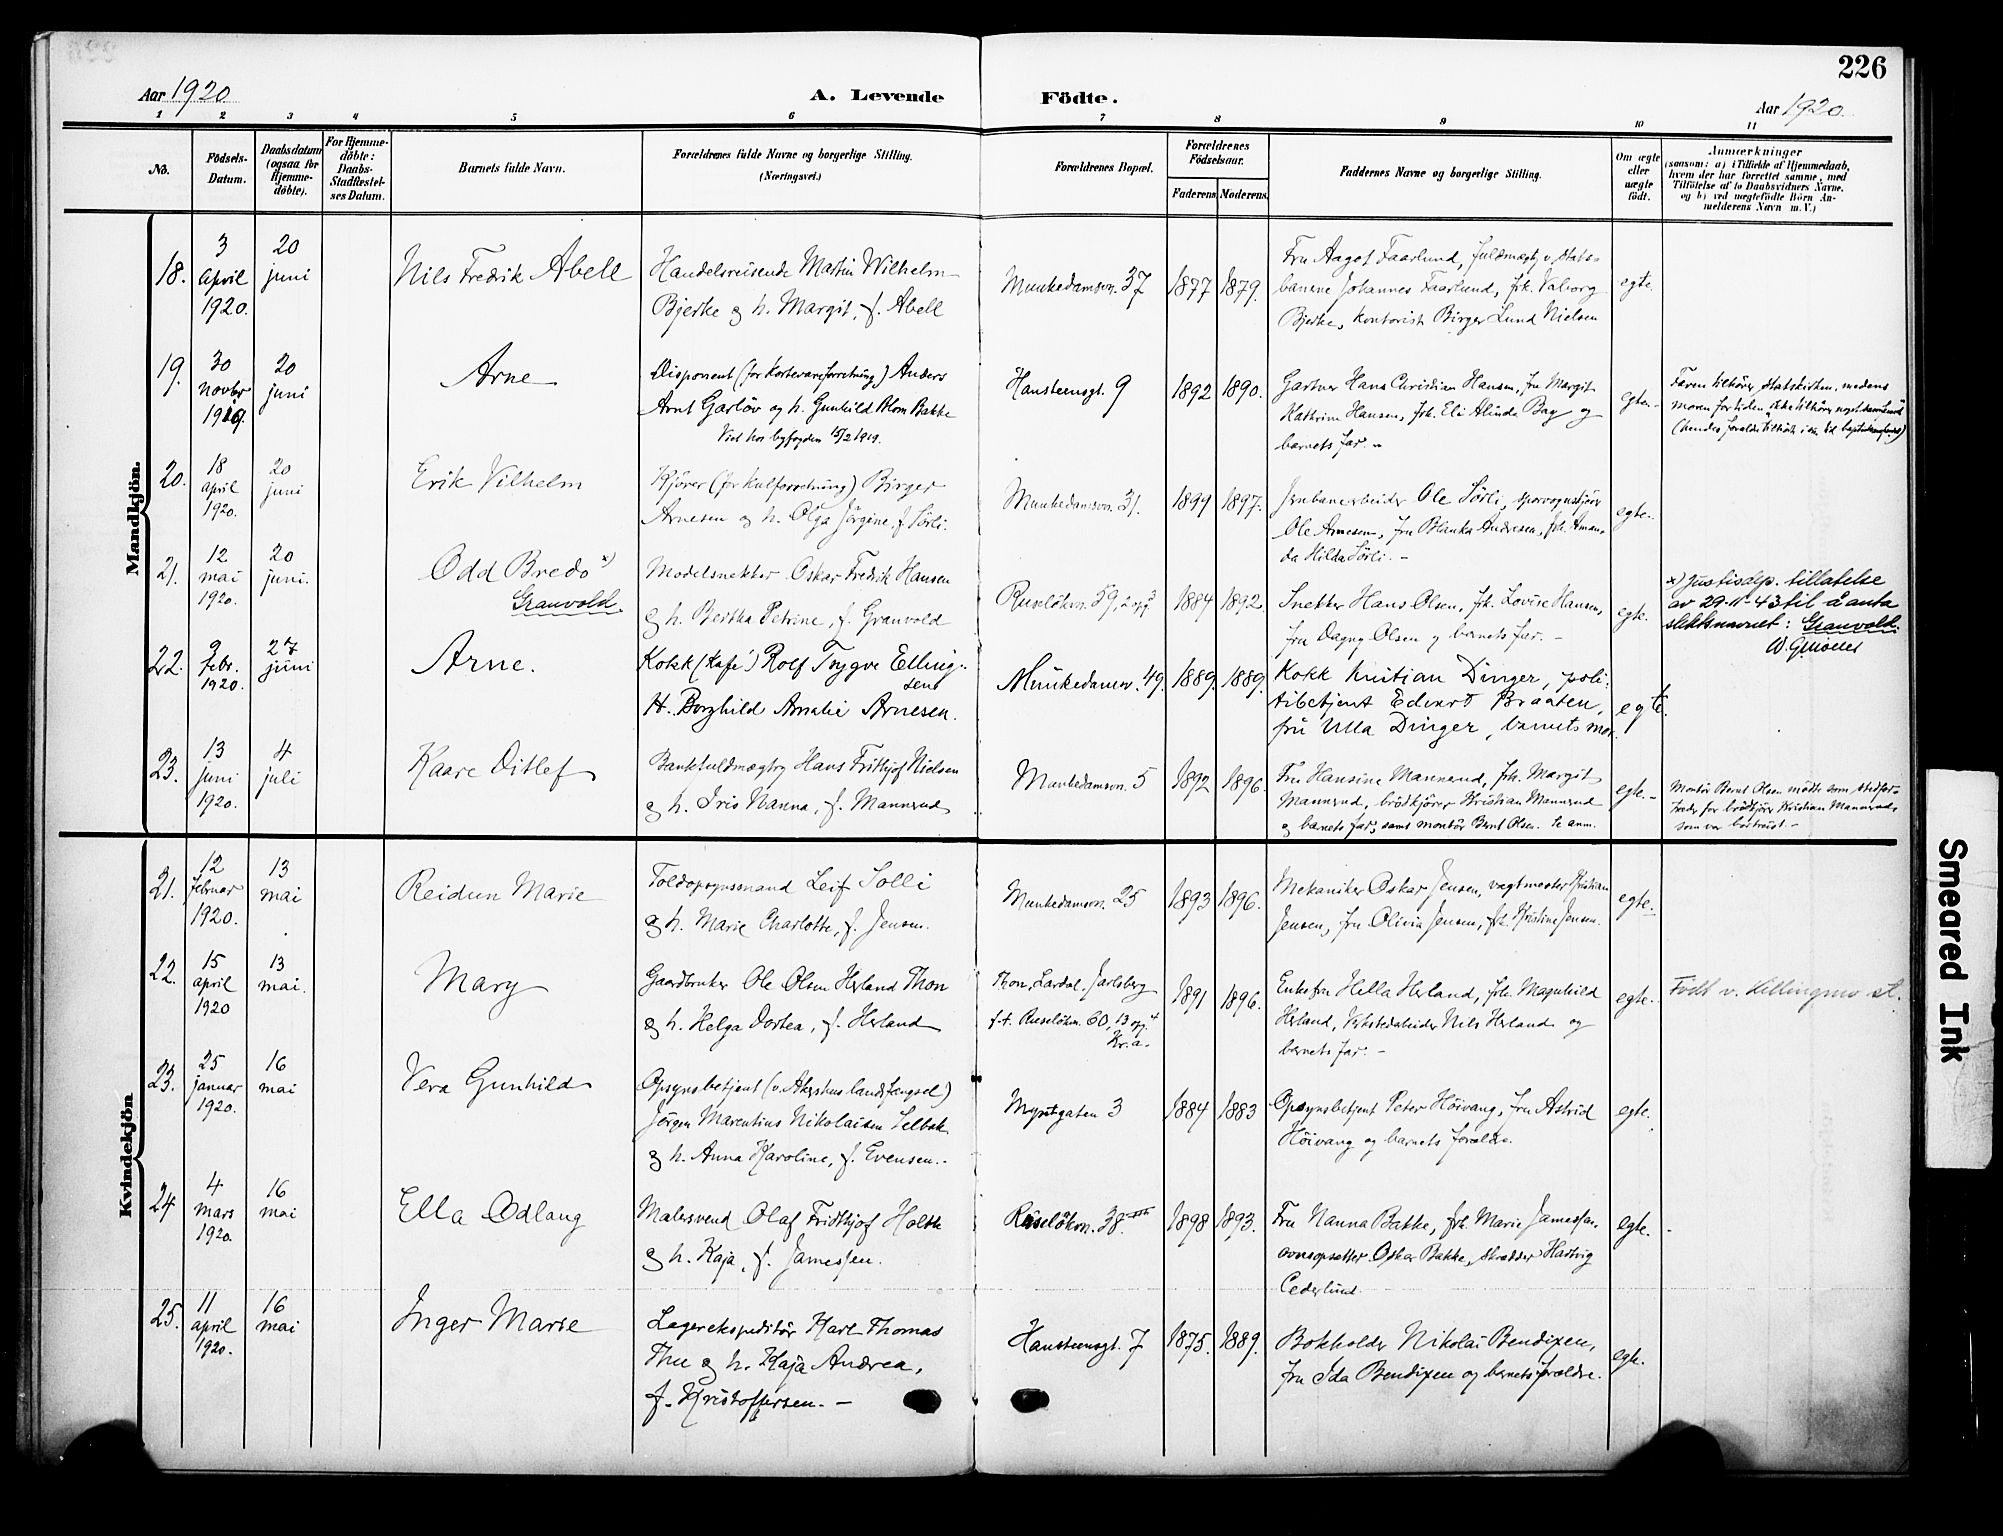 226
Aar 1920
A. Levende Födte.
Aar 1920.
1 2 3 4 5 6 7 8 9 10 11
No.
Födsels-
Datum.
Daabsdatum
(ogsaa for
Hjemme-
döbte).
For Hjemme-
döbte:
Daabs-
Stadfæstel-
ses Datum.
Barnets fulde Navn.
Forældrenes fulde Navne og borgerlige Stilling.
(Næringsvei.)
Forældrenes Bopæl.
Forældrenes
Födselsaar.
Faderens Moderens.
Faddernes Navne og borgerlige Stilling.
Om ægte
eller
uægte
født.
Anmærkninger
(saasom: a) i Tilfælde af Hjemmedaab,
hvem der har forrettet samme, med
Tilföielse af to Daabsvidners Navne,
og b) ved uægtefödte Börn An-
melderens Navn m.V.)
Mandkjön.
18.
3
April
1920.
20
juni
Nils Fredrik Abell
Handelsreisende Martin Wilhelm
Bjerke og h. Margit, f. Abell
Munkedamsvn. 37
1877 1879.
Fru Aagot Faarlund, fuldmægtg v. Stats-
banerne Johannes Faarlund, frk. Valborg
Bjerke, kontorist Birger Lund Nielsen
egte.
19.
30
novbr
1919.
20
juni
Arne
Disponent (for kortevareforretning) Anders
Arnt Garlöv og h. Gunhild Blom Bakke
Viet hos byfogden 15/2 1919.
Hansteensgt. 9
1892 1890.
Gartner Hans Christian Hansen, fru Margit
Kathrine Hansen, frk. Eli Alinda Bag og
barnets far. -
egte. -
Faren tilhører statskirken, medens
moren for tiden ikke tilhører noget samfund
20.
18
april
1920.
20
juni
Erik Vilhelm
Kjörer (for kulforretning) Birger
Arnesen og h. Olga Jörgine, f. Sörli.
Munkedamsvn. 31.
1899 1897.
Jernbanearbeider Ole Sörli, sporvognskjörer
Ole Arnesen, fru Blanka Andresen, frk. Aman-
da Hilda Sörli. -
egte.
21.
12
mai
1920.
20
juni.
Odd Bredo x)
Granvold.
Modelsnekker Oskar Fredrik Hansen
og h. Bertha Petrine, f. Granvold
Ruselökvn. 59, 2 opg. 3
1884 1892.
Snekker Hans Olsen, frk. Lovise Hansen,
fru Dagny Olsen og barnets far. -
egte.
x) Justisdep. tillatelse
av 29-11-43 til å anta
slektsnavnet: Granvold.
22.
9
febr.
1920.
27
juni
Arne.
Kokk (Kafe) Rolf Trygve Elling-
sen
H. Borghild Amalie Arnesen.
Munkedamsv. 49.
1889. 1889.
Kokk Kristian Dinger, poli-
tibetjent Edvart Braaten,
fru Ulla Dinger, barnets mor.
egte.
23.
13
juni
1920.
4
juli
Kaare Ditlef
Bankfuldmægtig Hans Frithjof Nielsen
og h. Iris Nanna, f. Mannerud
Munkedamsvn. 5
1892 1896.
Fru Hansine Mannerud, frk. Margit
Mannerud, brödkjörer Kristian Mannerud
og barnets far, samt montör Bernt Olsen. Se anm.
egte. -
Montör Bernt Olsen mödte som stedfor-
træder for brödkjörer Kristian Mannerud,
som var bortreist. -
Kvindekjön
21.
12
februar
1920.
13
mai
Reidun Marie
Toldopsynsmand Leif Solli
og h. Marie Charlotte, f. Jensen.
Munkedamsvn. 25
1893 1896.
Mekaniker Oskar Jensen, vagtmester Kristian
Jensen, fru Olivia Jensen, frk. Kristine Jensen.
egte.
22.
15
april
1920
13
mai.
Mary
Gaardbruker Ole Olsen Herland Thon
og h. Helga Dortea, f. Herland
Thon, Lardal, Jarlsberg
f.t. Ruselökvn. 60, 13 opg. 4
Kr.a.
1891 1896.
Enkefru Hella Herland, frk. Magnhild
Herland, Verkstedarbeider Nils Herland og
barnets far. -
egte.
Født v. Killingmo st.
23.
25
januar
1920.
16
mai
Vera Gunhild
Opsynsbetjent (v. Akershus landsfængsel)
Jörgen Marentius Nikolaisen Selbak
og h. Anna Karoline, f. Evensen. -
Myntgaten 3
1884 1883
Opsynsbetjent Peter Höivang, fru Astrid
Höivang og barnets forældre.
egte.
24
4
mars
1920.
16
mai
Ella Odlaug
Malersvend Olaf Fridthjof Holtk
og h. Kaja, f. Jamessen.
Ruselökvn. 38. III
1898 1893.
Fru Nanna Bakke, frk. Marie Jamessen,
ovnsopsetter Oskar Bakke, skrædder Hartvig
Cederlund.
egte.
25.
11
april
1920.
16
mai
Inger Marie
Lagerekspeditör Karl Thomas
Thu og h. Kaja Andrea,
f. Kristoffersen. -
Hansteensgt. 7
1875. 1889.
Bokholder Nikolai Bendixen,
fru Ida Bendixen og barnets forældre.
egte.
Smeared Ink